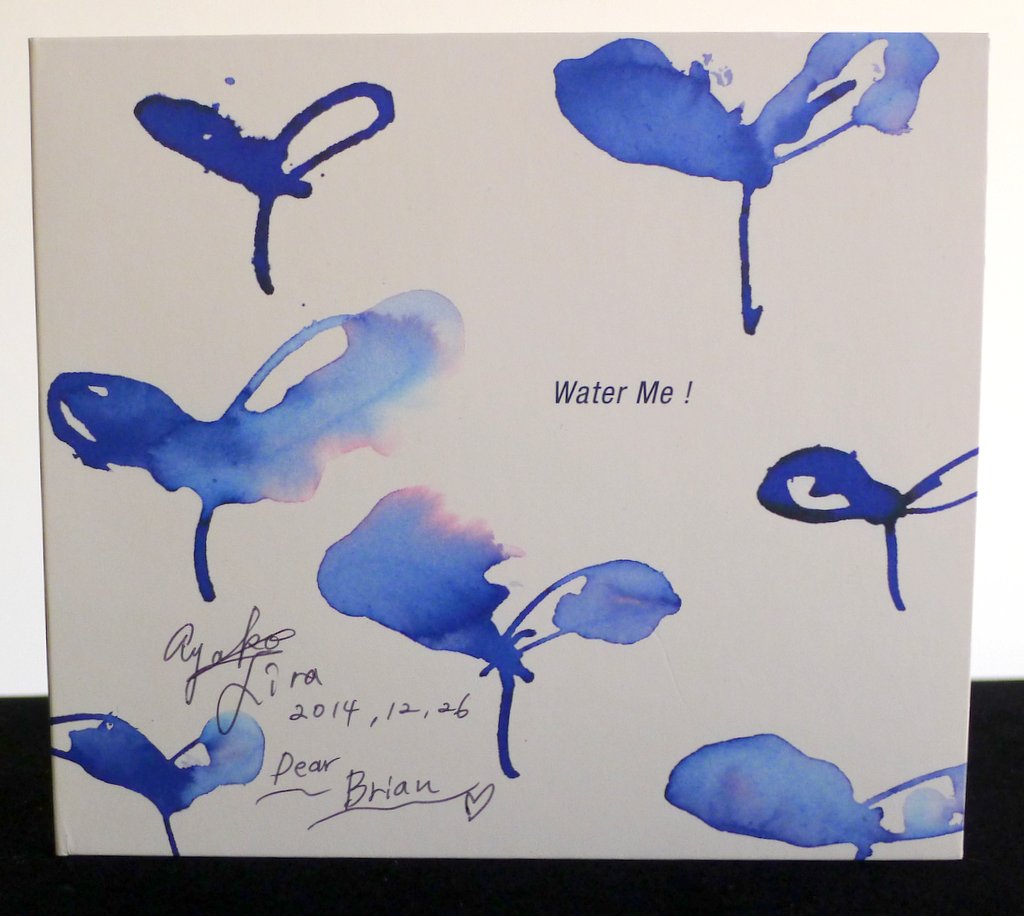 Water Me !
Ayako
Lira
2014,12,26
Dear
Brian